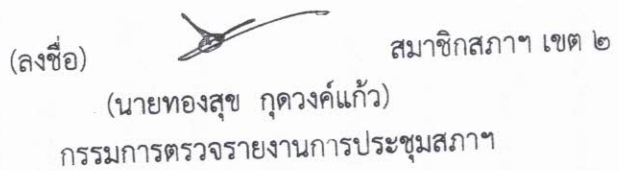 (ลงชื่อ) สมาชิกสภาฯ เขต ๒
(นายทองสุข กุดวงค์แก้ว)
กรรมการตรวจรายงานการประชุมสภาฯ